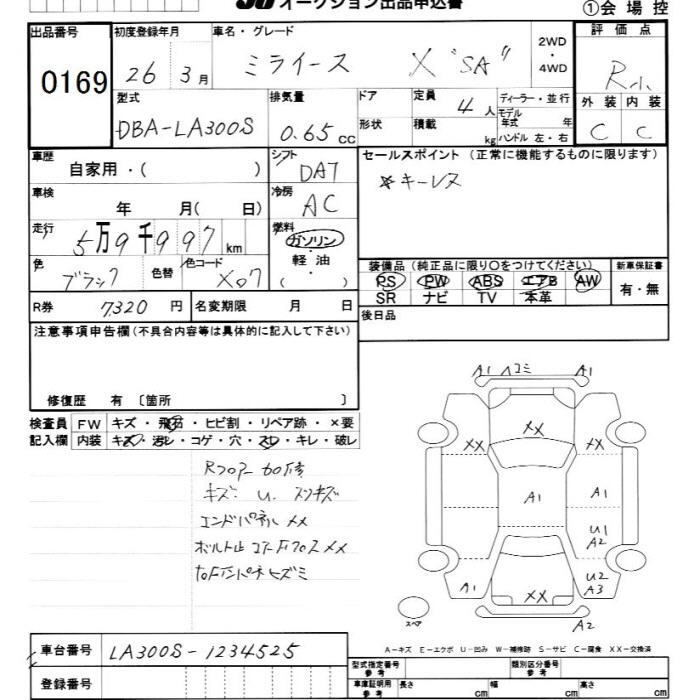 オークション出品申込書
①会場控
出品番号 初度登録年月 車名・グレード 評価点
0169 26 3月 ミライース X "SA" 2WD・4WD R小
型式 排気量 ドア 定員 ディーラー・並行 外装 内装
DBA-LA300S 0.65cc 4人 モデル年式 年 C C
形状 積載 kg ハンドル 左・右
車歴 自家用・( ) シフト DAT セールスポイント(正常に機能するものに限ります)
キーレス
車検 年 月( 日) 冷房 AC
走行 5万9千997km 燃料 ガソリン 軽油 ・( )
色 ブラック 色替 色コード X07
装備品(純正品に限り○をつけてください) 新車保証書
PS PW ABS エアB AW 有・無
SR ナビ TV 本革
R券 7,320円 名変期限 月 日
後日品
注意事項申告欄(不具合内容等は具体的に記入して下さい)
修復歴 有〔箇所 〕
検査員 FW キズ・飛石・ヒビ割・リペア跡・×要
記入欄 内装 キズ・汚レ・コゲ・穴・スレ・キレ・破レ
Rフロアー
キズ U
エンドパネル XX
ボルト止 XX
ヒズミ
A1 ヘコミ A1
XX
XX XX
A1 A1
U1
A2
U2
A3
A1 XX
A2
スペア
A-キズ E-エクボ U-凹み W-補修跡 S-サビ C-腐食 XX-交換済
車台番号 LA300S-1234525
登録番号
型式指定番号 参考 類別区分番号 参考
車庫証明用 参考 長さ cm 幅 cm 高さ cm